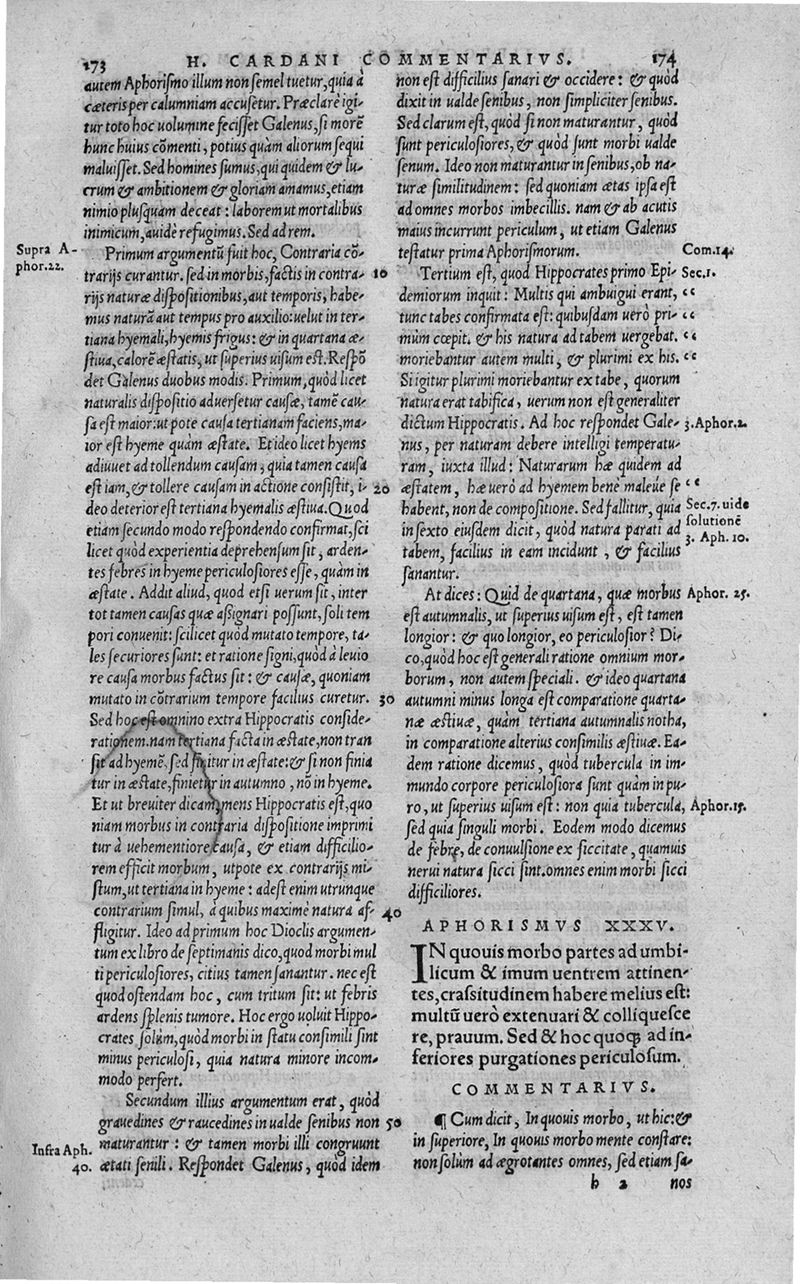 173 H. CARDANI COMMENTARIVS. 174
autem Aphorismo illum non semel tuetur, quia à
cæteris per calumniam accusetur. Præclarè igi-
tur toto hoc uolumine fecisset Galenus, si morẽ
hunc huius cõmenti, potius quàm aliorum sequi
maluisset. Sed homines sumus, qui quidem & lu-
crum & ambitionem & gloriam amamus, etiam
nimio plusquam deceat: laborem ut mortalibus
inimicum, auidè refugimus. Sed ad rem.
Supra A-
phor.22.
Primum argumentũ fuit hoc, Contraria cõ-
trarijs curantur. sed in morbis, factis in contra- 10
rijs naturæ dispositionibus, aut temporis, habe-
mus naturã aut tempus pro auxilio: uelut in ter-
tiana hyemali, hyemis frigus: & in quartana æ-
stiua, calorẽ æstatis, ut superius uisum est. Respõ
det Galenus duobus modis. Primum, quòd licet
naturalis dispositio aduersetur causæ, tamẽ cau-
sa est maior: ut pote causa tertianam faciens, ma-
ior est hyeme quàm æstate. Et ideo licet hyems
adiuuet ad tollendum causam, quia tamen causa
est iam, & tollere causam in actione consistit, i- 20
deo deterior est tertiana hyemalis æstiua. Quod
etiam secundo modo respondendo confirmat, sci
licet quòd experientia deprehensum sit, arden-
tes febres in hyeme periculosiores esse, quàm in
æstate. Addit aliud, quod etsi uerum sit, inter
tot tamen causas quæ assignari possunt, soli tem
pori conuenit: scilicet quòd mutato tempore, ta-
les securiores sunt: et ratione signi, quòd à leuio
re causa morbus factus sit: & causæ, quoniam
mutato in cõtrarium tempore facilius curetur. 30
Sed hoc est omnino extra Hippocratis conside-
rationem. nam tertiana facta in æstate, non tran
sit ad hyemẽ, sed finitur in æstate: & si non finia
tur in æstate, finietur in autumno, nõ in hyeme.
Et ut breuiter dicam, mens Hippocratis est, quo
niam morbus in contraria dispositione imprimi
tur à uehementiore causa, & etiam difficilio-
rem efficit morbum, utpote ex contrarijs mi-
stum, ut tertiana in hyeme: adest enim utrunque
contrarium simul, à quibus maximè natura af- 40
fligitur. Ideo ad primum hoc Dioclis argumen-
tum ex libro de septimanis dico, quod morbi mul
ti periculosiores, citius tamen sanantur. nec est
quod ostendam hoc, cum tritum sit: ut febris
ardens splenis tumore. Hoc ergo uoluit Hippo-
crates solùm, quòd morbi in statu consimili sint
minus periculosi, quia natura minore incom-
modo perfert.
Secundum illius argumentum erat, quòd
grauedines & raucedines in ualde senibus non 50
maturantur: & tamen morbi illi congruunt
Infra Aph.
40.
ætati senili. Respondet Galenus, quòd idem
non est difficilius sanari & occidere: & quòd
dixit in ualde senibus, non simpliciter senibus.
Sed clarum est, quòd si non maturantur, quòd
sunt periculosiores, & quòd sunt morbi ualde
senum. Ideo non maturantur in senibus, ob na-
turæ similitudinem: sed quoniam ætas ipsa est
ad omnes morbos imbecillis. nam & ab acutis
maius incurrunt periculum, ut etiam Galenus
testatur prima Aphorismorum. Com.14.
Tertium est, quod Hippocrates primo Epi- Sec.1.
demiorum inquit: Multis qui ambuigui erant, “
tunc tabes confirmata est: quibusdam uerò pri- “
mùm cœpit. & his natura ad tabem uergebat. “
moriebantur autem multi, & plurimi ex his. “
Si igitur plurimi moriebantur ex tabe, quorum
natura erat tabifica, uerum non est generaliter
dictum Hippocratis. Ad hoc respondet Gale- 3.Aphor.2.
nus, per naturam debere intelligi temperatu-
ram, iuxta illud: Naturarum hæ quidem ad
æstatem, hæ uerò ad hyemem benè maleúe se “
habent, non de compositione. Sed fallitur, quia Sec.7. uide
solutionẽ
3. Aph. 10.
in sexto eiusdem dicit, quòd natura parati ad
tabem, facilius in eam incidunt, & facilius
sanantur.
At dices: Quid de quartana, quæ morbus Aphor. 25.
est autumnalis, ut superius uisum est, est tamen
longior: & quo longior, eo periculosior? Di-
co, quòd hoc est generali ratione omnium mor-
borum, non autem speciali. & ideo quartana
autumni minus longa est comparatione quarta-
næ æstiuæ, quàm tertiana autumnalis notha,
in comparatione alterius consimilis æstiuæ. Ea-
dem ratione dicemus, quòd tubercula in im-
mundo corpore periculosiora sunt quàm in pu-
ro, ut superius uisum est: non quia tubercula, Aphor.15.
sed quia singuli morbi. Eodem modo dicemus
de febre, de conuulsione ex siccitate, quamuis
nerui natura sicci sint. omnes enim morbi sicci
difficiliores.
APHORISMVS XXXV.
IN quouis morbo partes ad umbi-
licum & imum uentrem attinen-
tes, crassitudinem habere melius est:
multũ uerò extenuari & colliquesce
re, prauum. Sed & hoc quoqʒ ad in-
feriores purgationes periculosum.
COMMENTARIVS.
¶ Cum dicit, In quouis morbo, ut hic: &
in superiore, In quouis morbo mente constare:
non solùm ad ægrotantes omnes, sed etiam sa-
h 2 nos